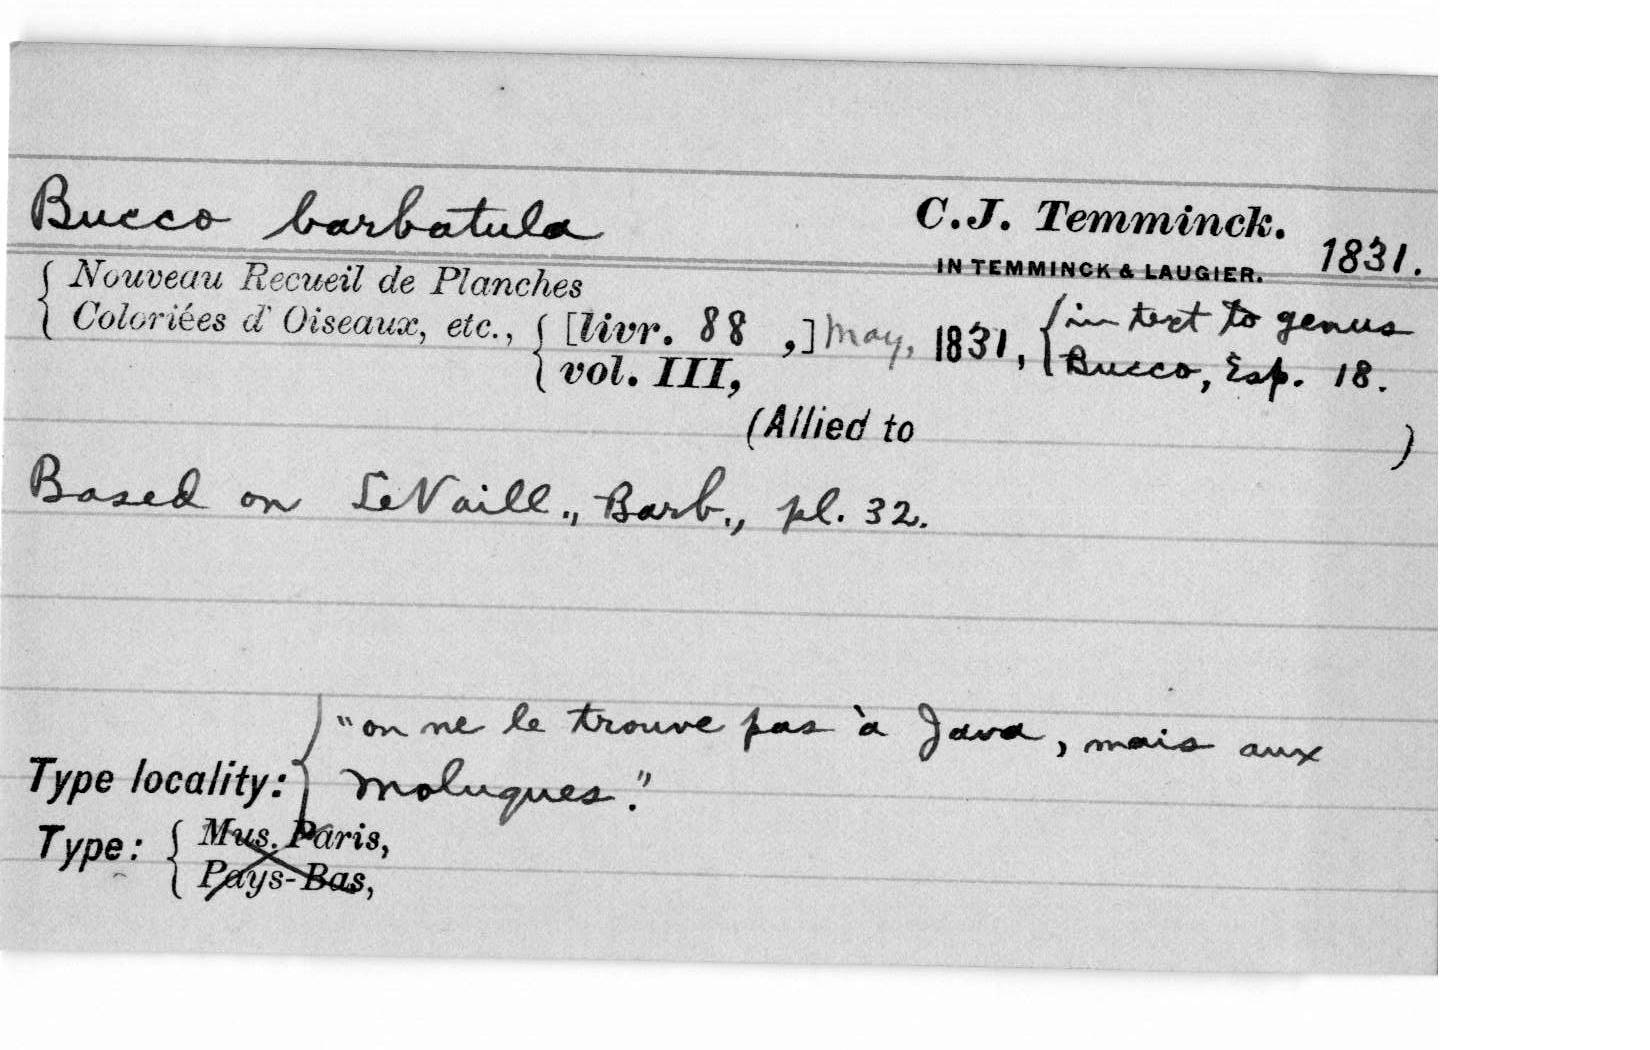 Bucco barbatula C.J. Temminck.
IN TEMMINCK & LAUGIER. 1831.
Nouveau Recueil de Planches
Coloriées d'Oiseaux, etc., [livr. 88 ,] May, 1831, in text to genus
vol. III, Bucco, Esp. 18.
(Allied to )
Based on LeVaill., Barb., pl. 32.
"on ne le trouve pas à Java, mais aux
Type locality: Moluques."
Type: Mus. Paris,
Pays-Bas,